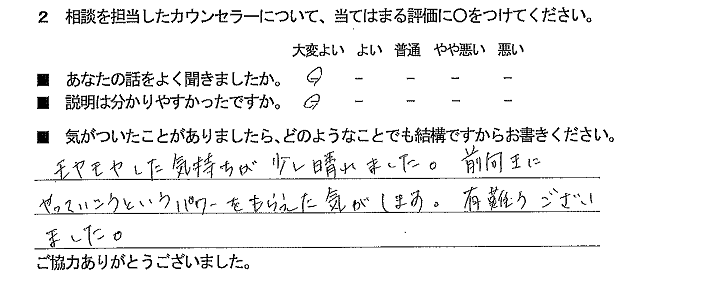 2 相談を担当したカウンセラーについて、当てはまる評価に〇をつけてください。
大変よい よい 普通 やや悪い 悪い
■ あなたの話をよく聞きましたか。 〇 － － － －
■ 説明は分かりやすかったですか。 〇 － － － －
■ 気がついたことがありましたら、どのようなことでも結構ですからお書きください。
モヤモヤした気持ちが少し晴れました。前向きに
やっていこうというパワーをもらえた気がします。有難うござい
ました。
ご協力ありがとうございました。